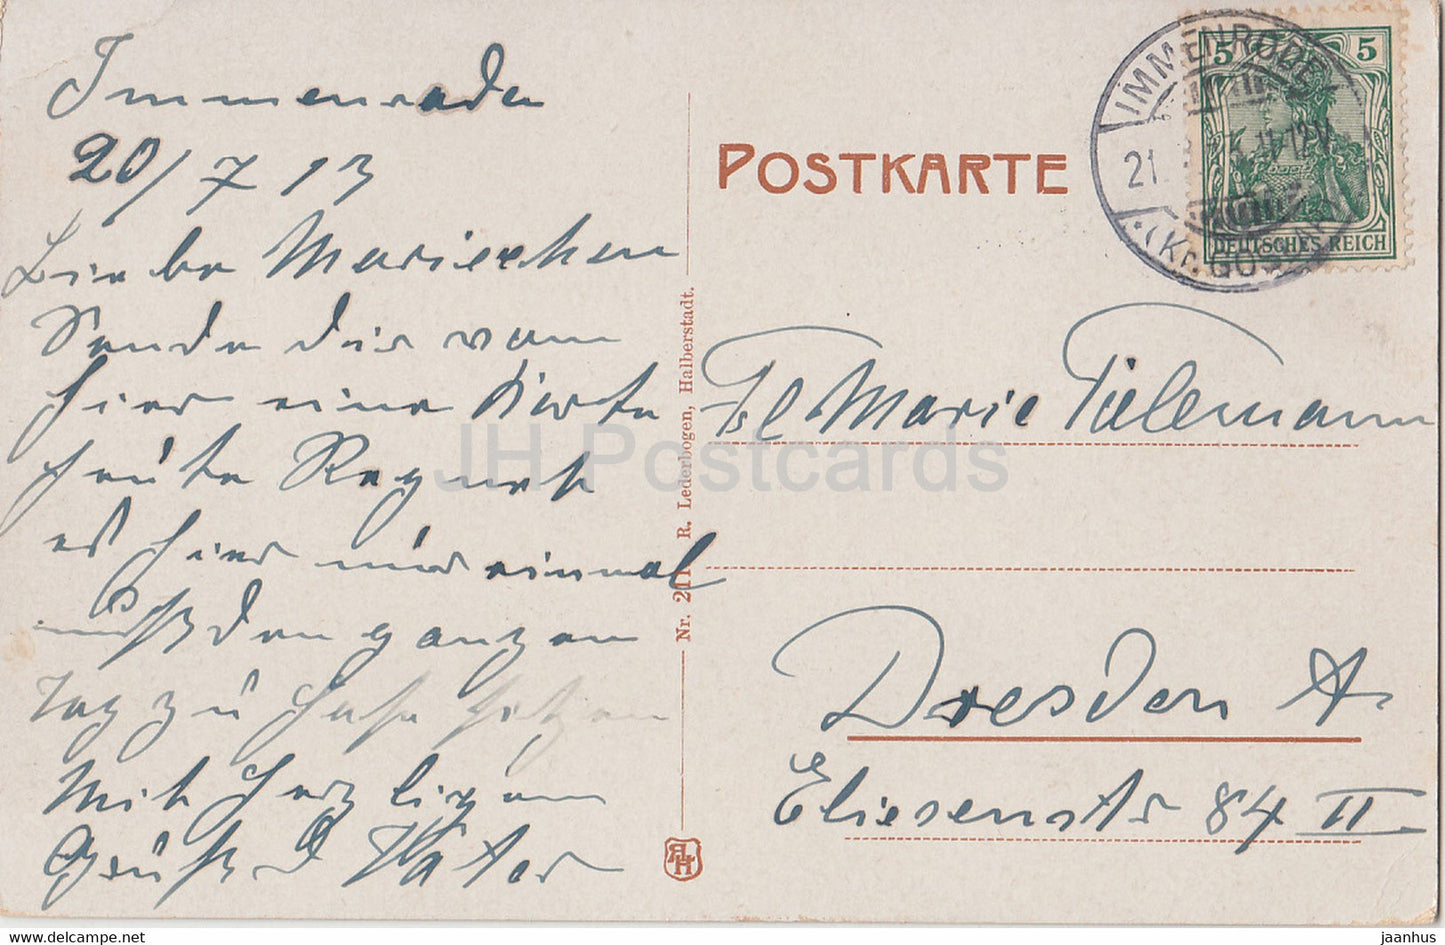 Immenrode
20/7 13
Liebe Mariechen
Sende dir vom
hier eine Karte
heute Regnet
es hier nur einmal
muß den ganzen
Tag zu Hause sitzen
Mit herzligem
Gruß d Vater
POSTKARTE
Nr. 211 R. Lederbogen, Halberstadt.
RLH
IMMENRODE
21. 11-12V
(Kr. GOSLAR)
5 5
DEUTSCHES REICH
Frl Marie Tielemann
Dresden A.
Eliesenstr 84 II
JH Postcards
delcampe.net
jaanhus